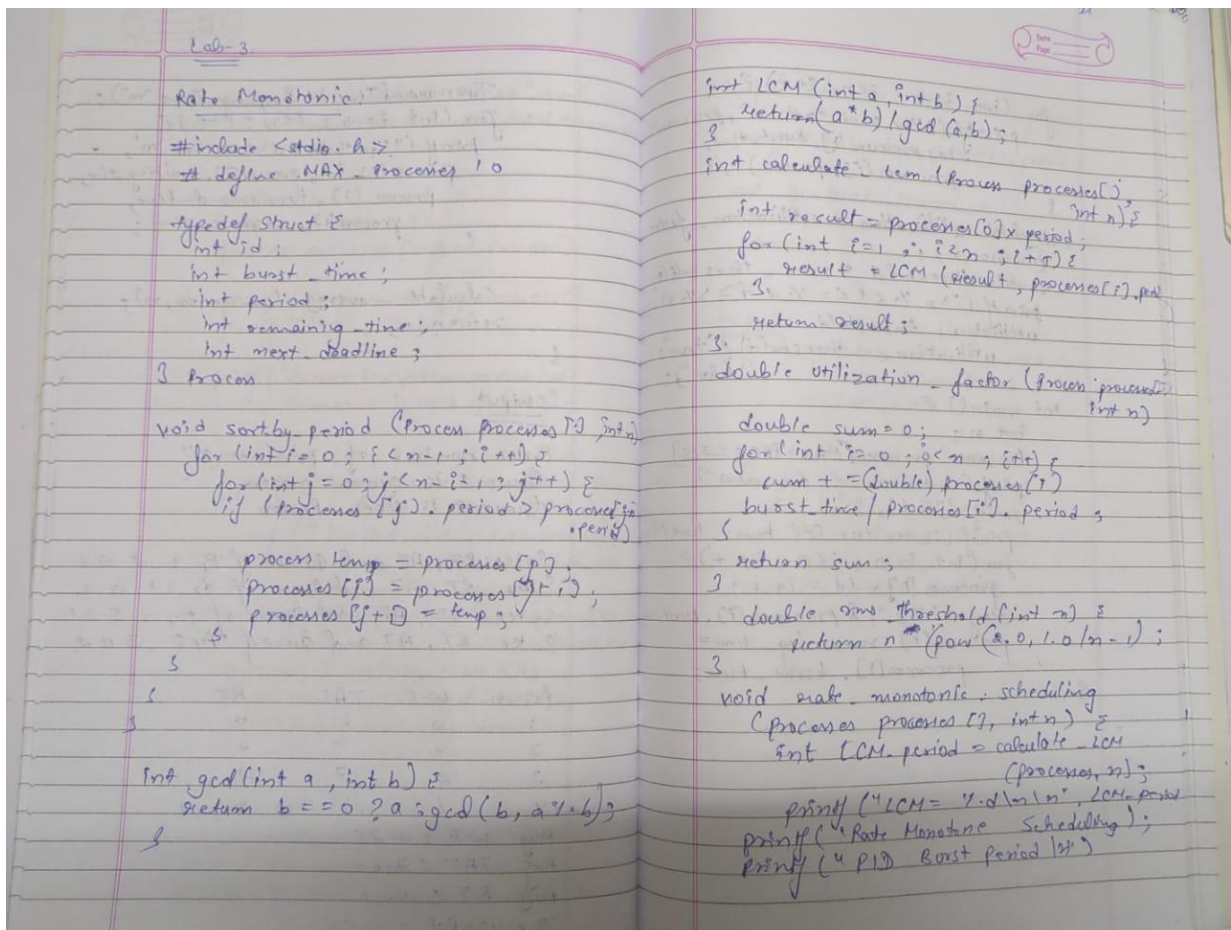 Lab-3
Rate Monotonic.
#include <stdio.h>
# define MAX-Processes 10
typedef struct {
int id;
int burst_time;
int period;
int remaining_time;
int next_deadline;
} Process
void sort.by_period (Process Processes [], int n)
for (int i = 0; i < n-1; i++) {
for (int j = 0; j < n-i-1; j++) {
if (processes [j]. period > processes[j+
.period)
process temp = processes [j];
processes [j] = processes [j+1];
processes [j+1] = temp;
}
}
}
}
int gcd(int a, int b) {
return b == 0 ? a : gcd(b, a % b);
}
Date
Page
int LCM (int a, int b) {
return (a * b) / gcd (a,b);
}
int calculate_lcm (Process processes[],
int n) {
int result = processes[0] x period;
for (int i=1, ; i<n ; i++) {
result = LCM (result, processes[i].per
}
return result;
}
double utilization_factor (Process processes[]
int n)
double sum = 0;
for (int i= 0 ; i< n ; i++) {
sum + = (double) processes [i]
burst_time / processes [i]. period ;
}
return sum;
}
double rms_threshold (int n) {
return n * (pow (2.0, 1.0/n-1) ;
}
void rate_monotonic_scheduling
(Processes processes [], int n) {
int LCM_period = calculate_LCM
(processes, n);
printf ("LCM= %d\n\n", LCM_period
printf ("Rate Monotone Scheduling);
printf (" PID Burst Period \n")